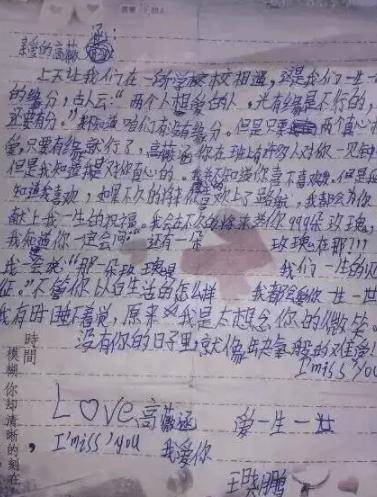 亲爱的高薇涵
上天让我们在一所学校相遇，这是我们一生一
的缘分，古人云："两个人相爱的人，光有缘是不行的，
还要有分。"我知道咱们有没有缘分。但是只要两个真心相
爱，只要有缘就行了，高薇涵你在班上有许多人对你一见钟
但是我知道我是对你真心的。我不知道你喜不喜欢我。但是
知道我喜欢，如果不久的将来你喜欢上了
献上我一生的祝福。我会在不久的将来为你999朵玫瑰，
我知道你一定会问"还有一朵 玫瑰在那???
我会说"那一朵玫瑰是 我们一生的
征。"不管你以后生活的怎么样 我都会 你一世一
我有时睡不着觉，原来 我是太想念你的微笑。
没有你的日子里，就像 般的难受!
I'miss'you
Love高薇涵 爱一生一世
I'miss'you 我爱你
時間
模糊，你却清晰的刻在